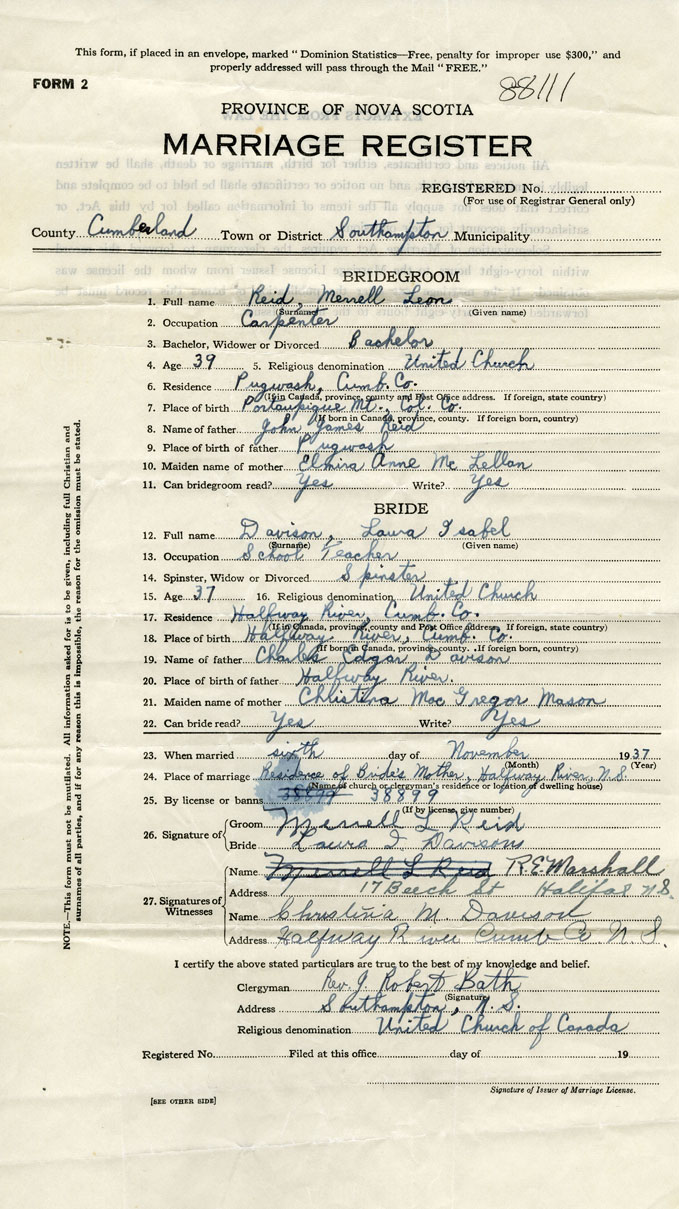 This form, if placed in an envelope, marked "Dominion Statistics—Free, penalty for improper use $300," and
properly addressed will pass through the Mail "FREE."
FORM 2
88111
PROVINCE OF NOVA SCOTIA
MARRIAGE REGISTER
REGISTERED No.
(For use of Registrar General only)
County Cumberland Town or District Southampton Municipality
BRIDEGROOM
1. Full name Reid, Merrell Leon
(Surname) (Given name)
2. Occupation Carpenter
3. Bachelor, Widower or Divorced Bachelor
4. Age 39 5. Religious denomination United Church
6. Residence Pugwash, Cumb. Co.
(If in Canada, province, county and Post Office address. If foreign, state country)
7. Place of birth Portaupique Mt., Col. Co.
(If born in Canada, province, county. If foreign born, country)
8. Name of father John James Reid
9. Place of birth of father Pugwash
10. Maiden name of mother Elmira Anne Mc Lellan
11. Can bridegroom read? Yes Write? Yes
BRIDE
12. Full name Davison, Laura Isabel
(Surname) (Given name)
13. Occupation School Teacher
14. Spinster, Widow or Divorced Spinster
15. Age 37 16. Religious denomination United Church
17. Residence Halfway River, Cumb. Co.
(If in Canada, province, county and Post Office address. If foreign, state country)
18. Place of birth Halfway River, Cumb. Co.
(If born in Canada, province, county. If foreign born, country)
19. Name of father Charles Edgar Davison
20. Place of birth of father Halfway River.
21. Maiden name of mother Christina Mac Gregor Mason
22. Can bride read? Yes Write? Yes
23. When married sixth day of November 1937
(Month) (Year)
24. Place of marriage Residence of Bride's Mother, Halfway River, N.S.
(Name of church or clergyman's residence or location of dwelling house)
25. By license or banns 38899 38899
(If by license, give number)
26. Signature of Groom Merrell L Reid
Bride Laura I. Davison
27. Signatures of Witnesses
Name Merrell L Reid R.E. Marshall
Address 17 Beech St Halifax N.S.
Name Christina M Davison
Address Halfway River Cumb Co N.S.
I certify the above stated particulars are true to the best of my knowledge and belief.
Clergyman Rev. J. Robert Bath
(Signature)
Address Southampton, N.S.
Religious denomination United Church of Canada
Registered No. Filed at this office day of 19
Signature of Issuer of Marriage License.
[SEE OTHER SIDE]
NOTE.—This form must not be mutilated. All information asked for is to be given, including full Christian and
surnames of all parties, and if for any reason this is impossible, the reason for the omission must be stated.